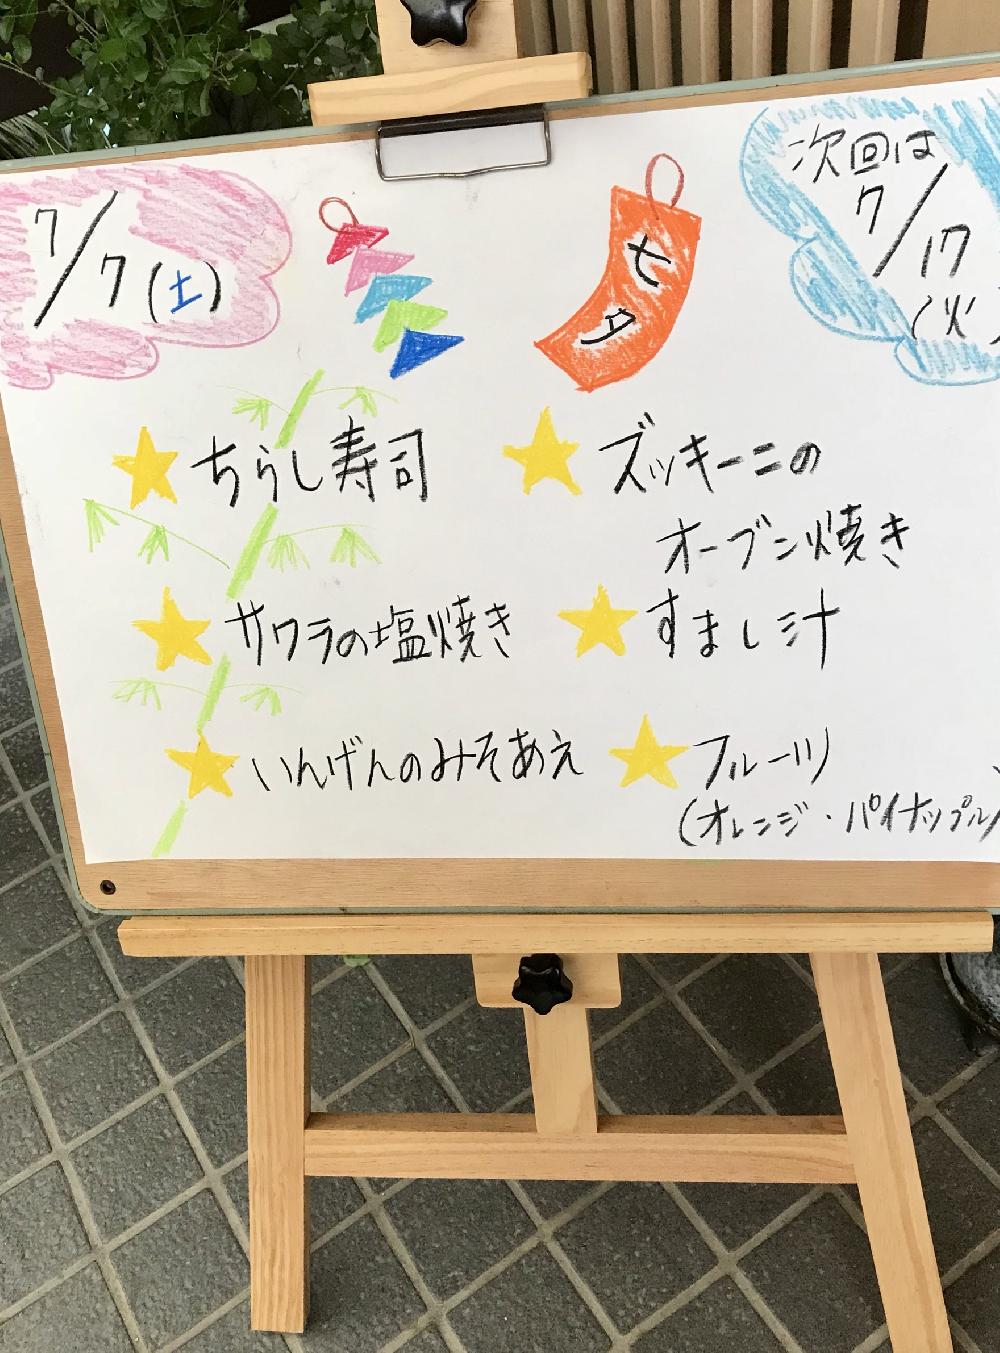 7/7(土)
七夕
次回は
7/17
(火
ちらし寿司
サワラの塩焼き
いんげんのみそあえ
ズッキーニの
オーブン焼き
すまし汁
フルーツ
(オレンジ・パイナップル